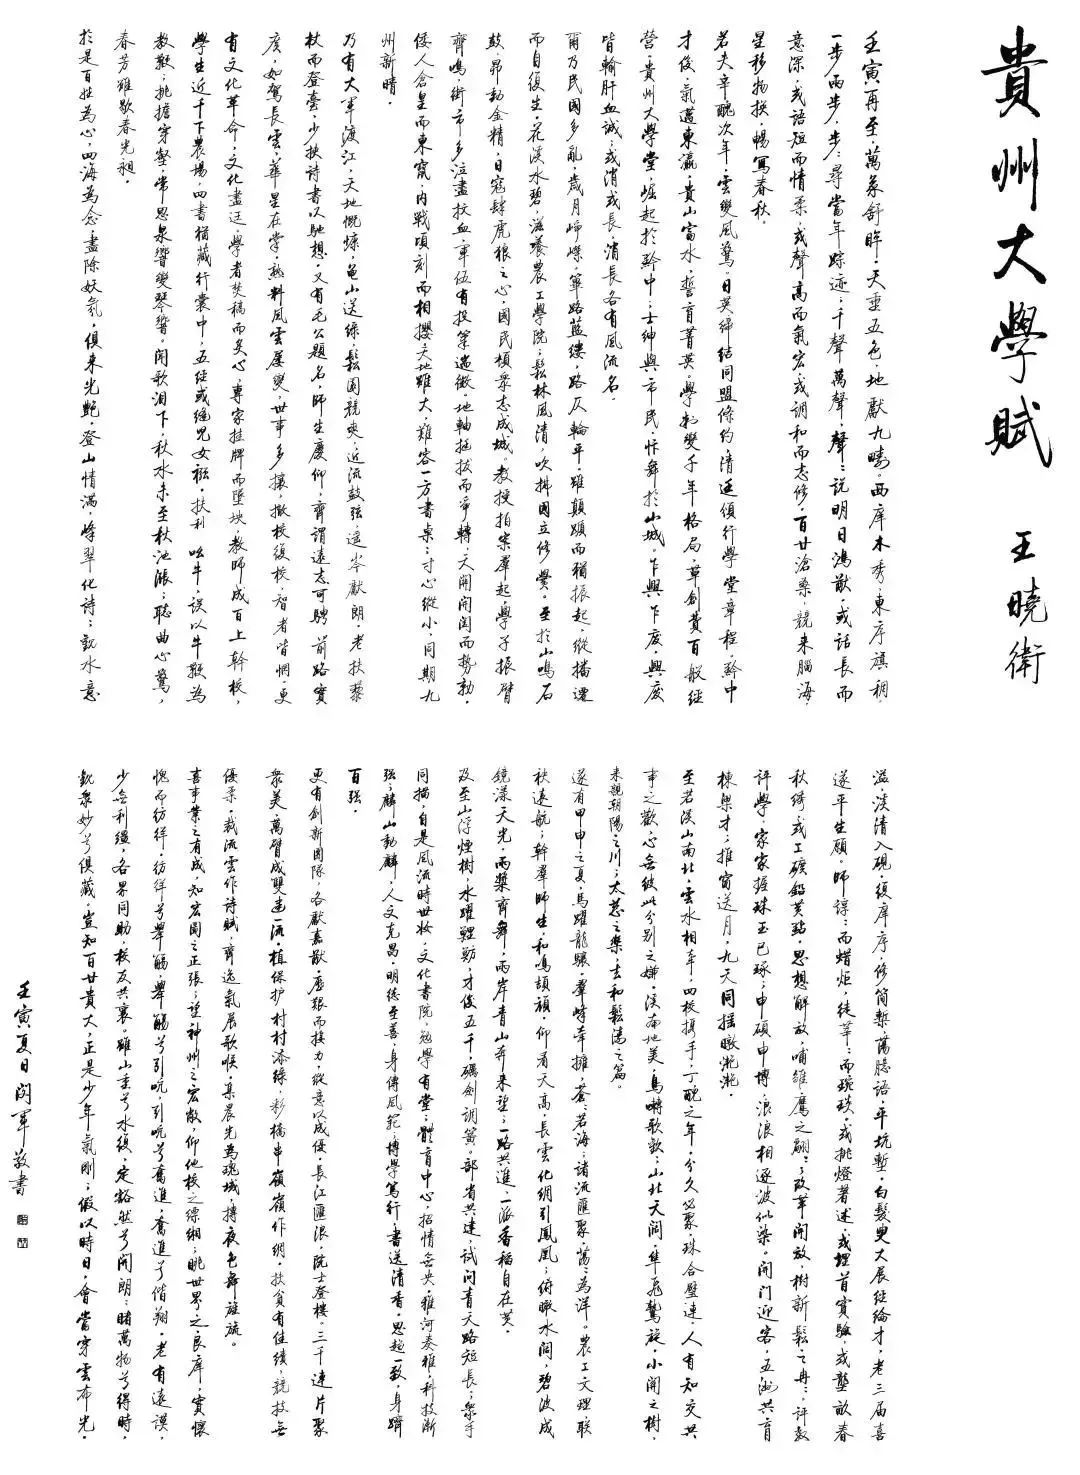 貴州大學賦
王曉衛
壬寅再至，萬象舒眸，天垂五色，地獻九疇。西庠木秀，東序旗稠，
一步兩步，步步尋當年踪迹；千聲萬聲，聲聲說明日鴻猷。或話長而
意深，或語短而情柔，或聲高而氣宏，或調和而志修，百廿滄桑，競来腦海，
星移物換，暢寫春秋。
若夫辛醜次年，雲變風驚，日英締結同盟條約，清廷傾行學堂章程，黔中
才俊，氣邁東瀛，貴山富水，誓育菁英，學制變千年格局，草創費百般經
營。貴州大學堂，崛起於黔中；士紳與市民，忭舞於山城。乍興乍廢，興廢
皆輸肝血誠；或消或長，消長各有風流名。
爾乃民國多亂，歲月崢嶸，篳路藍縷，路仄輪平，雖顛躓而猶振起，縱播遷
而自復生。花溪水碧，滋養農工學院；鬆林風清，吹拂國立修黌。至於山鳴石
鼓，昴動金精，日寇肆虎狼之心，國民積衆志成城，教授拍案群起，學子振臂
齊鳴，街市多泣盡抆血，軍伍有投筆遄徵，地軸拖拔而爭轉，天閶開闔而勢動，
倭人倉皇而東竄，内戰頃刻而相攖，天地雖大，難容一方書桌；寸心縱小，同期九
州新晴。
乃有大軍渡江，天地慨慷，龜山送綠，鬆園競爽，近流鼓弦，遥岑獻朗，老扶藜
杖而登臺，少挾詩書以馳想，又有毛公題名，師生慶仰，齊謂遠志可騁，前路寬
廣，如駕長雲，華星在掌，孰料風雲屢變，世事多攘，撤校復校，智者皆惘，更
有文化革命，文化盡迋，學者焚稿而灰心，專家挂牌而墜坱，教師成百上幹校，
學生近千下農場，四書猶藏行囊中，五經或繞兒女襁，扶利 吆牛，誤以牛鞭為
教鞭；挑擔穿壑，常思泉響變琴響。聞歌泪下，秋水未至秋池漲；聽曲心驚，
春芳雖歇春光昶。
於是百姓為心，四海為念，盡除妖氛，俱来光艷，登山情滿，峰翠化詩；觀水意
溢，溪清入硯，復庠序，修簡槧，蕩臆語，平坑塹，白髮叟大展經綸才，老三届喜
遂平生願。師諄諄而蠟炬，徒莘莘而琬琰，或挑燈著述，或埋首實驗，或壟畝春
秋綺，或工礦鉛黄點，思想解放，哺雛鷹之翩翩；改革開放，樹新鬆之冉冉；評教
評學，家家握珠玉已琢；申碩申博，浪浪相逐波似染。開門迎客，五洲共育
棟樑才；推窗送月，九天同摇瞰灔灔。
至若溪山南北，雲水相牽，四校攜手，丁醜之年，分久必聚，珠合璧連，人有知交共
事之歡，心無彼此分别之嫌，溪南地美，鳥囀歌歡；山北天闊，隼飛鷲旋，小開之樹，
来親朝陽之川；太慈之樂，去和鬆濤之篇。
遂有甲申之夏，馬躍龍驤，群峰牽擁，蒼蒼若海；諸流匯聚，蕩蕩為洋。農工文理聯
袂遠航，幹群師生，和鳴頡頏，仰看天高，長雲化綢引鳳凰；俯瞰水闊，碧波成
鏡漾天光，兩槳齊舞，兩岸青山奔来望，一路共進，一派香稻自在黄。
及至山浮煙樹，水躍鯉魴，才俊五千，礪劍調簧。部省共建，試問青天路短長；衆手
同描，自是風流時世妝，文化書院，勉學有堂；體育中心，招情無央，雅河奏雅，科技漸
强；麟山動麟，人文克昌，明德至善，身傳風範；博學篤行，書送清香，思趨一致，身躋
百强。
更有創新團隊，各獻嘉猷，鷹張而接力，縱意以成優，長江匯浪，院士登樓。三千連片聚
衆美，萬臂成雙建一流，植保护村村添綠，彩橋串嶺嶺作綱，扶貧有佳績，競技無
優柔，裁流雲作詩賦，齊逸氣展歌喉，集農先為瑰域，摶夜色舞旌旒。
喜事業之有成，知宏圖之正張；望神州之宏敞，仰他校之縹緗；眺世界之良庠，實懷
愧而彷徉，彷徉兮舉觴，舉觴兮引吭，引吭兮奮進，奮進兮偕翔。老有遠謨，
少無利繮，各界同助，校友共襄，雖山重兮水復，定豁然兮開朗；睹萬物兮得時，
觀衆妙兮俱藏，豈知百廿貴大，正是少年氣剛；假以時日，會當穿雲布光。
壬寅夏日 閔軍敬書